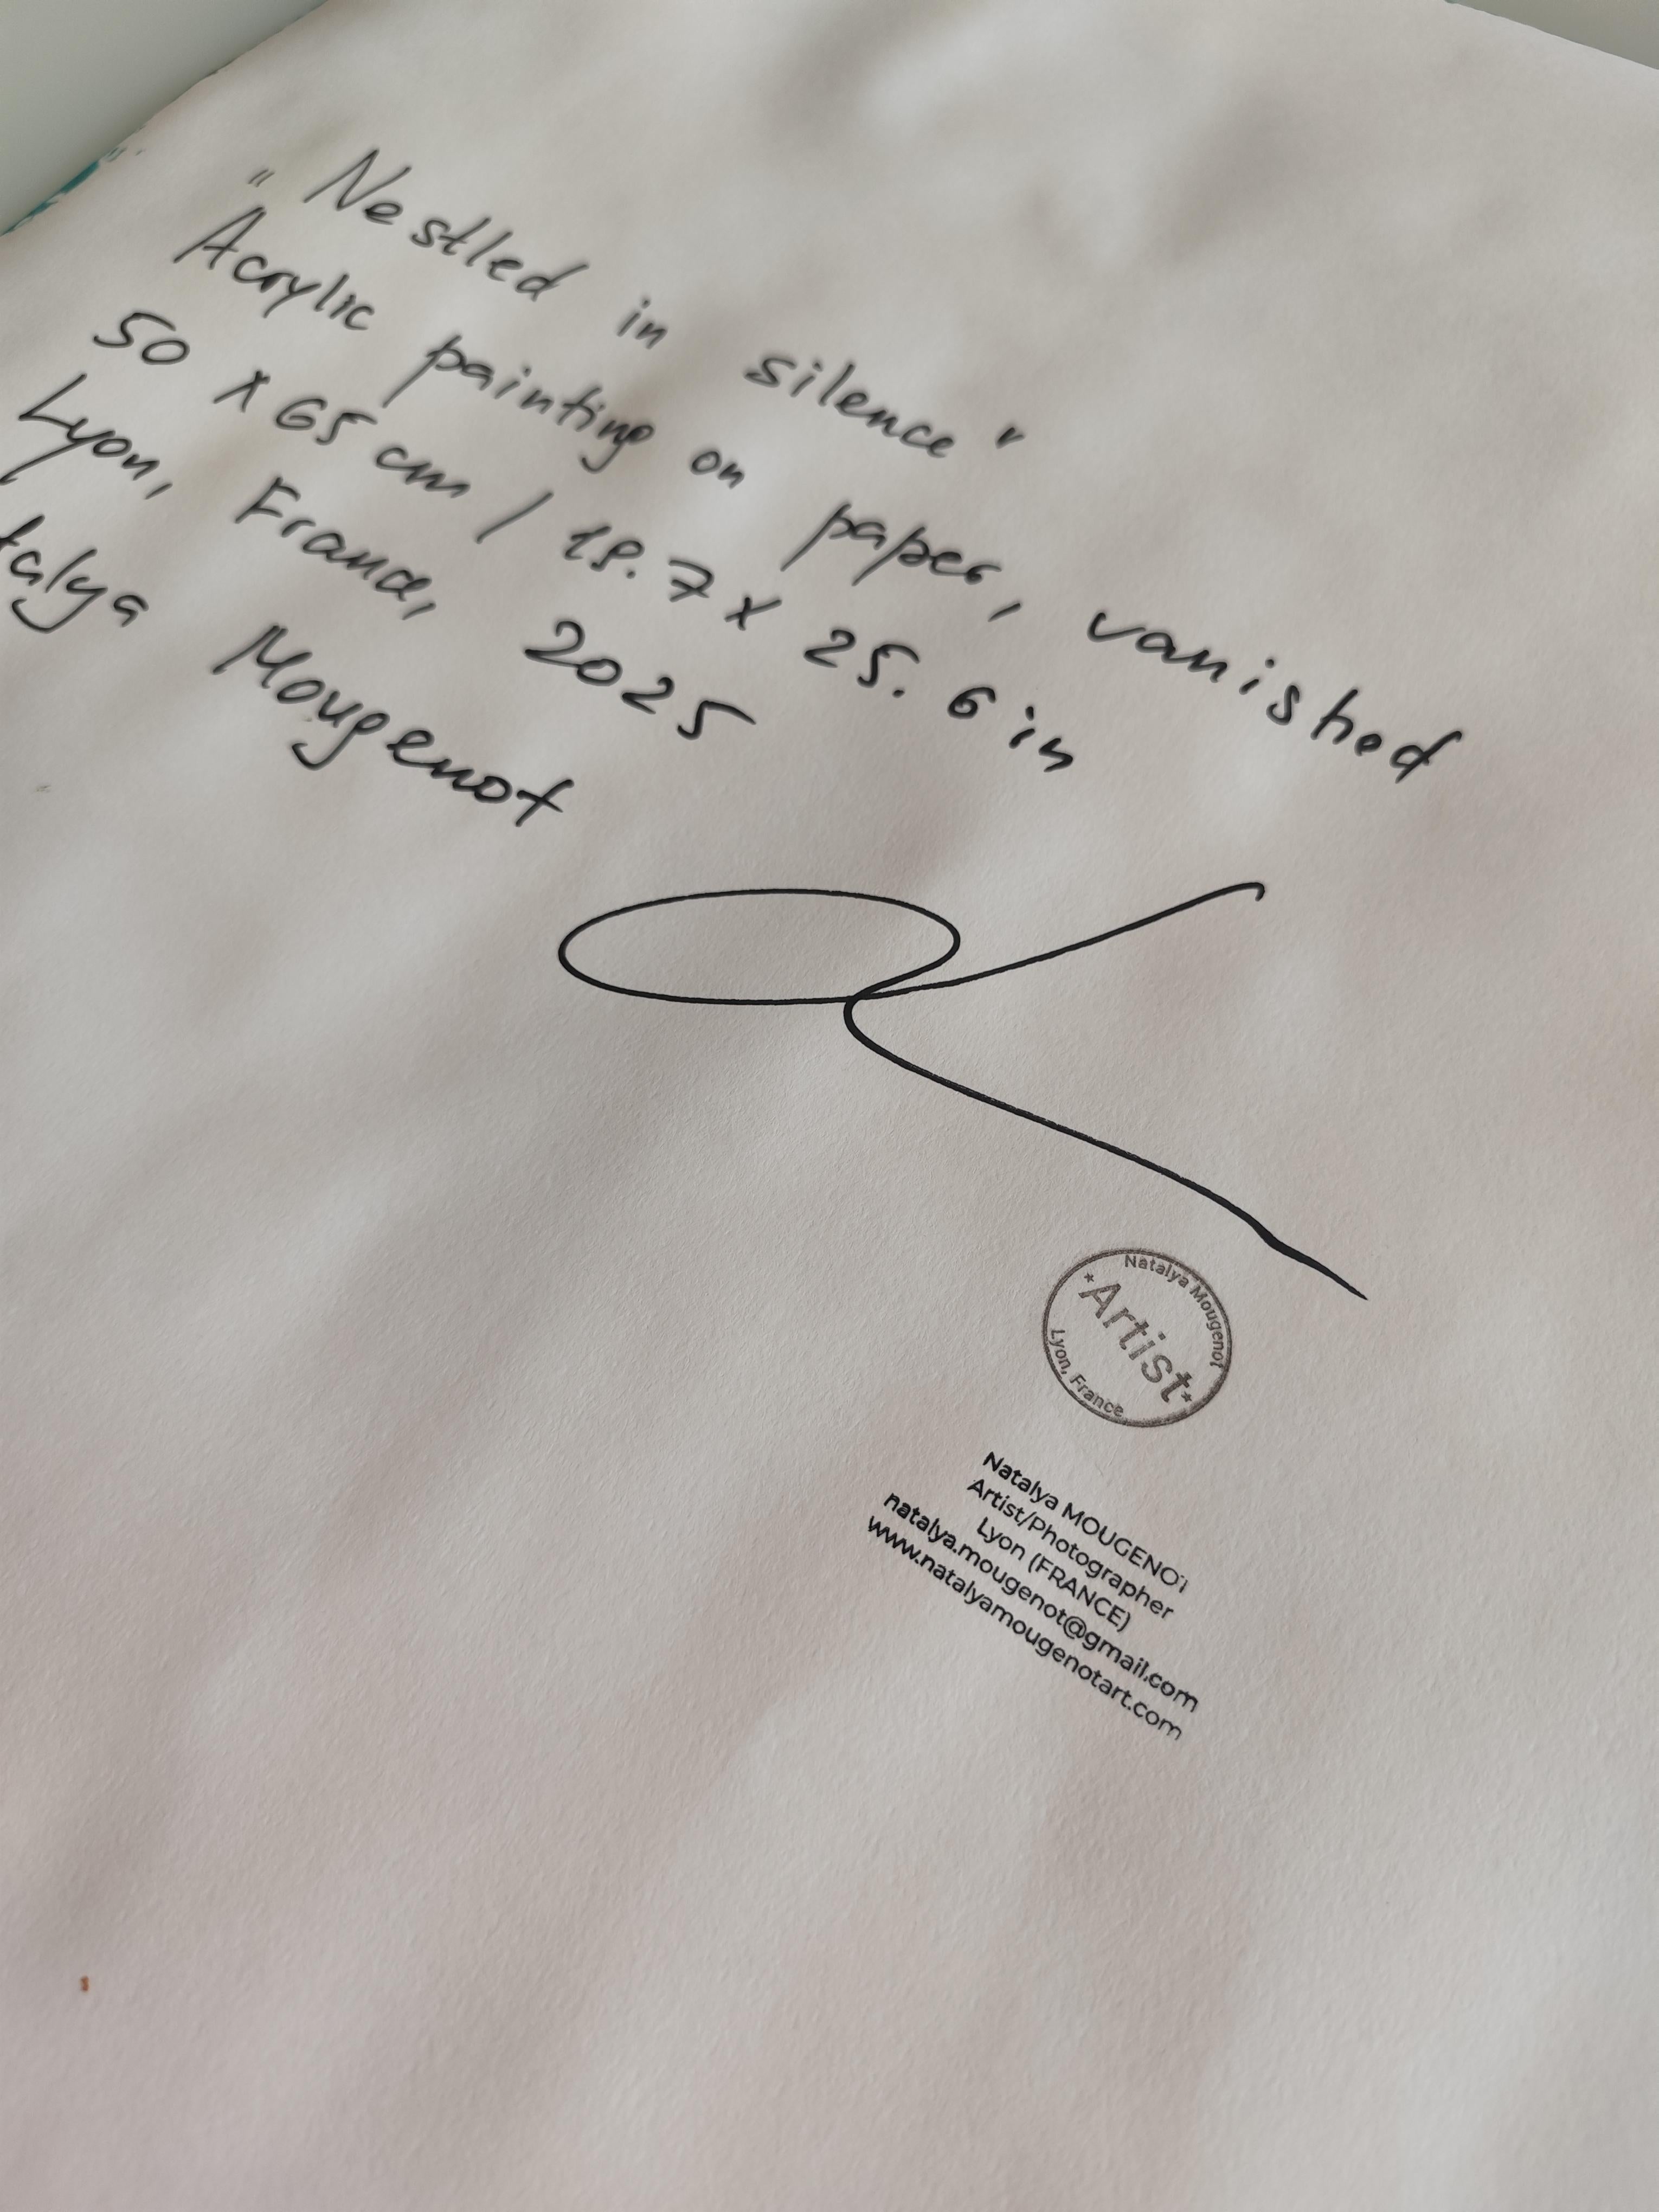 "Nestled in silence"
Acrylic painting on paper, vanished
50 x 65 cm / 19.7 x 25.6 in
Lyon, France, 2025
talya Mougenot
Natalya Mougenot
*Artist*
Lyon, France
Natalya MOUGENOT
Artist/Photographer
Lyon (FRANCE)
natalya.mougenot@gmail.com
www.natalyamougenotart.com